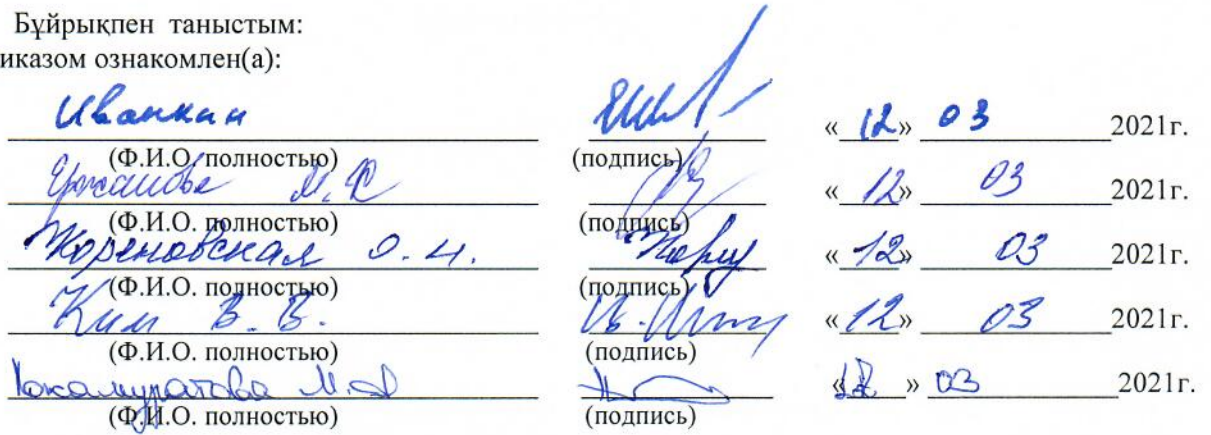 Бұйрықпен таныстым:
иказом ознакомлен(а):
Иванкин « 12 » 03 2021г.
(Ф.И.О. полностью) (подпись)
М. « 12 » 03 2021г.
(Ф.И.О. полностью) (подпись)
О. Н. « 12 » 03 2021г.
(Ф.И.О. полностью) (подпись)
Ким В. В. « 12 » 03 2021г.
(Ф.И.О. полностью) (подпись)
М. « 12 » 03 2021г.
(Ф.И.О. полностью) (подпись)